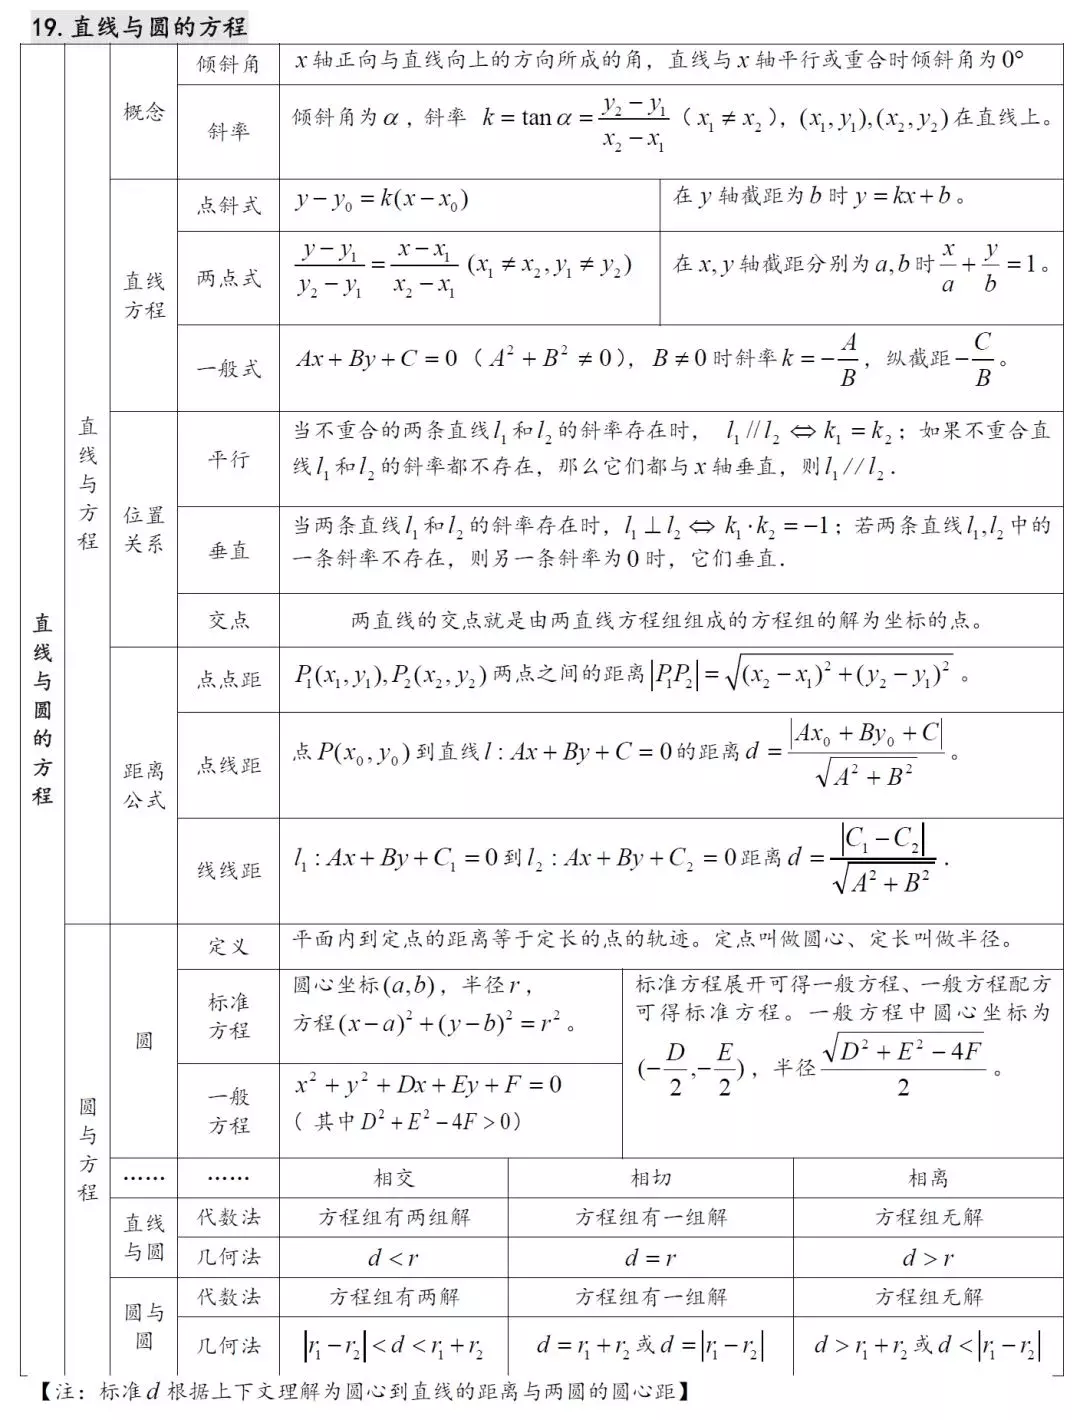 19.直线与圆的方程
直线与圆的方程
直线与方程
概念
倾斜角
x轴正向与直线向上的方向所成的角，直线与x轴平行或重合时倾斜角为0°
斜率
倾斜角为α，斜率 k=tanα=(y₂−y₁)/(x₂−x₁)（x₁≠x₂），(x₁,y₁),(x₂,y₂)在直线上。
直线方程
点斜式
y−y₀=k(x−x₀)
在y轴截距为b时y=kx+b。
两点式
(y−y₁)/(y₂−y₁)=(x−x₁)/(x₂−x₁) (x₁≠x₂,y₁≠y₂)
在x,y轴截距分别为a,b时x/a+y/b=1。
一般式
Ax+By+C=0（A²+B²≠0），B≠0时斜率k=−A/B，纵截距−C/B。
位置关系
平行
当不重合的两条直线l₁和l₂的斜率存在时， l₁//l₂⇔k₁=k₂；如果不重合直
线l₁和l₂的斜率都不存在，那么它们都与x轴垂直，则l₁//l₂.
垂直
当两条直线l₁和l₂的斜率存在时，l₁⊥l₂⇔k₁·k₂=−1；若两条直线l₁,l₂中的
一条斜率不存在，则另一条斜率为0时，它们垂直.
交点
两直线的交点就是由两直线方程组组成的方程组的解为坐标的点。
距离公式
点点距
P₁(x₁,y₁),P₂(x₂,y₂)两点之间的距离|P₁P₂|=√((x₂−x₁)²+(y₂−y₁)²)。
点线距
点P(x₀,y₀)到直线l:Ax+By+C=0的距离d=|Ax₀+By₀+C|/√(A²+B²)。
线线距
l₁:Ax+By+C₁=0到l₂:Ax+By+C₂=0距离d=|C₁−C₂|/√(A²+B²).
圆与方程
圆
定义
平面内到定点的距离等于定长的点的轨迹。定点叫做圆心、定长叫做半径。
标准方程
圆心坐标(a,b)，半径r，
方程(x−a)²+(y−b)²=r²。
标准方程展开可得一般方程、一般方程配方
可得标准方程。一般方程中圆心坐标为
(−D/2,−E/2)，半径√(D²+E²−4F)/2。
一般方程
x²+y²+Dx+Ey+F=0
（其中D²+E²−4F>0）
……
……
相交
相切
相离
直线与圆
代数法
方程组有两组解
方程组有一组解
方程组无解
几何法
d<r
d=r
d>r
圆与圆
代数法
方程组有两解
方程组有一组解
方程组无解
几何法
|r₁−r₂|<d<r₁+r₂
d=r₁+r₂或d=|r₁−r₂|
d>r₁+r₂或d<|r₁−r₂|
【注：标准d根据上下文理解为圆心到直线的距离与两圆的圆心距】